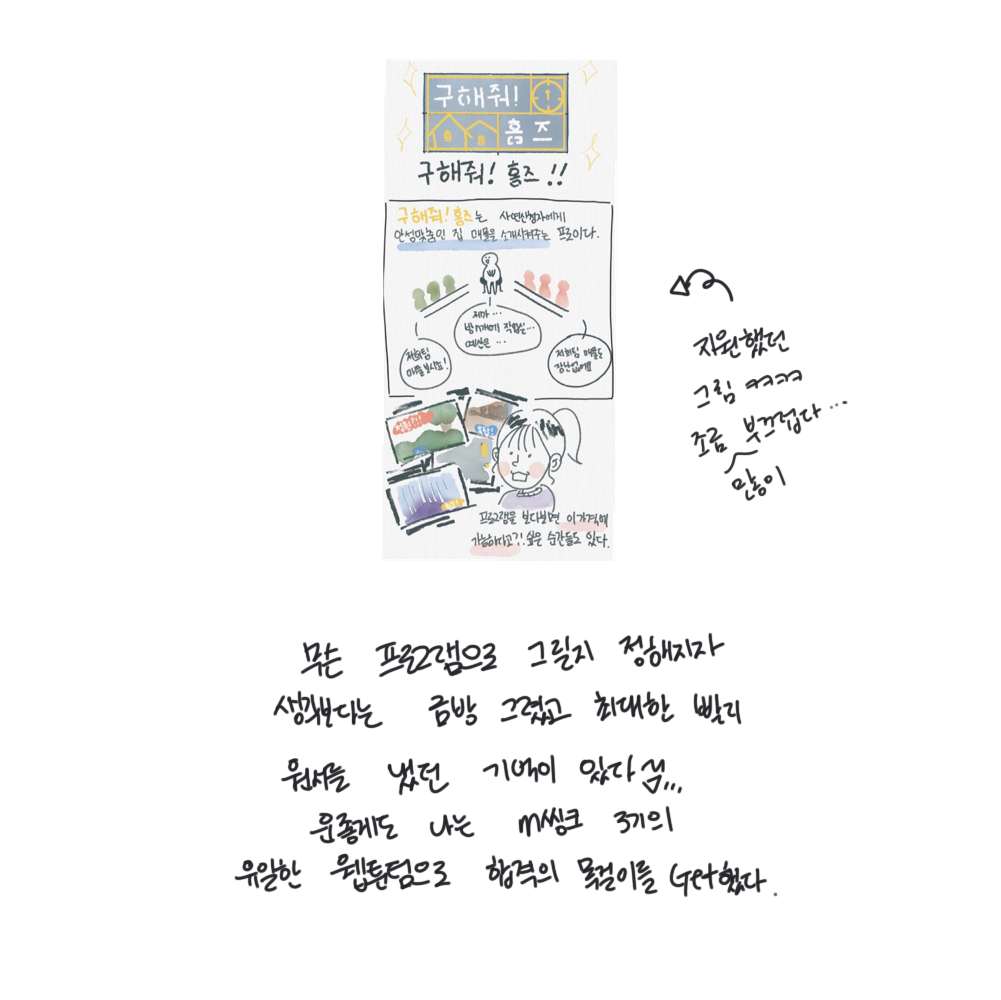 구해줘!
홈즈
구해줘! 홈즈!!
구해줘! 홈즈는 사연신청자에게
안성맞춤인 집 매물을 소개시켜주는 프로이다.
제가…
방 1개에 작업실…
예산은…
저희팀
매물 보시죠!
저희팀 매물도
장난없어요
정원!!!
프로그램을 보다보면 이가격에
가능하다고?! 싶은 순간들도 있다.
지원했던
그림 ㅋㅋㅋㅋ
조금 부끄럽다…
많이
무슨 프로그램으로 그릴지 정해지자
생각보다는 금방 그렸고 최대한 빨리
원서를 냈던 기억이 있다
운좋게도 나는 m씽크 3기의
유일한 웹툰팀으로 합격의 목걸이를 Get했다.